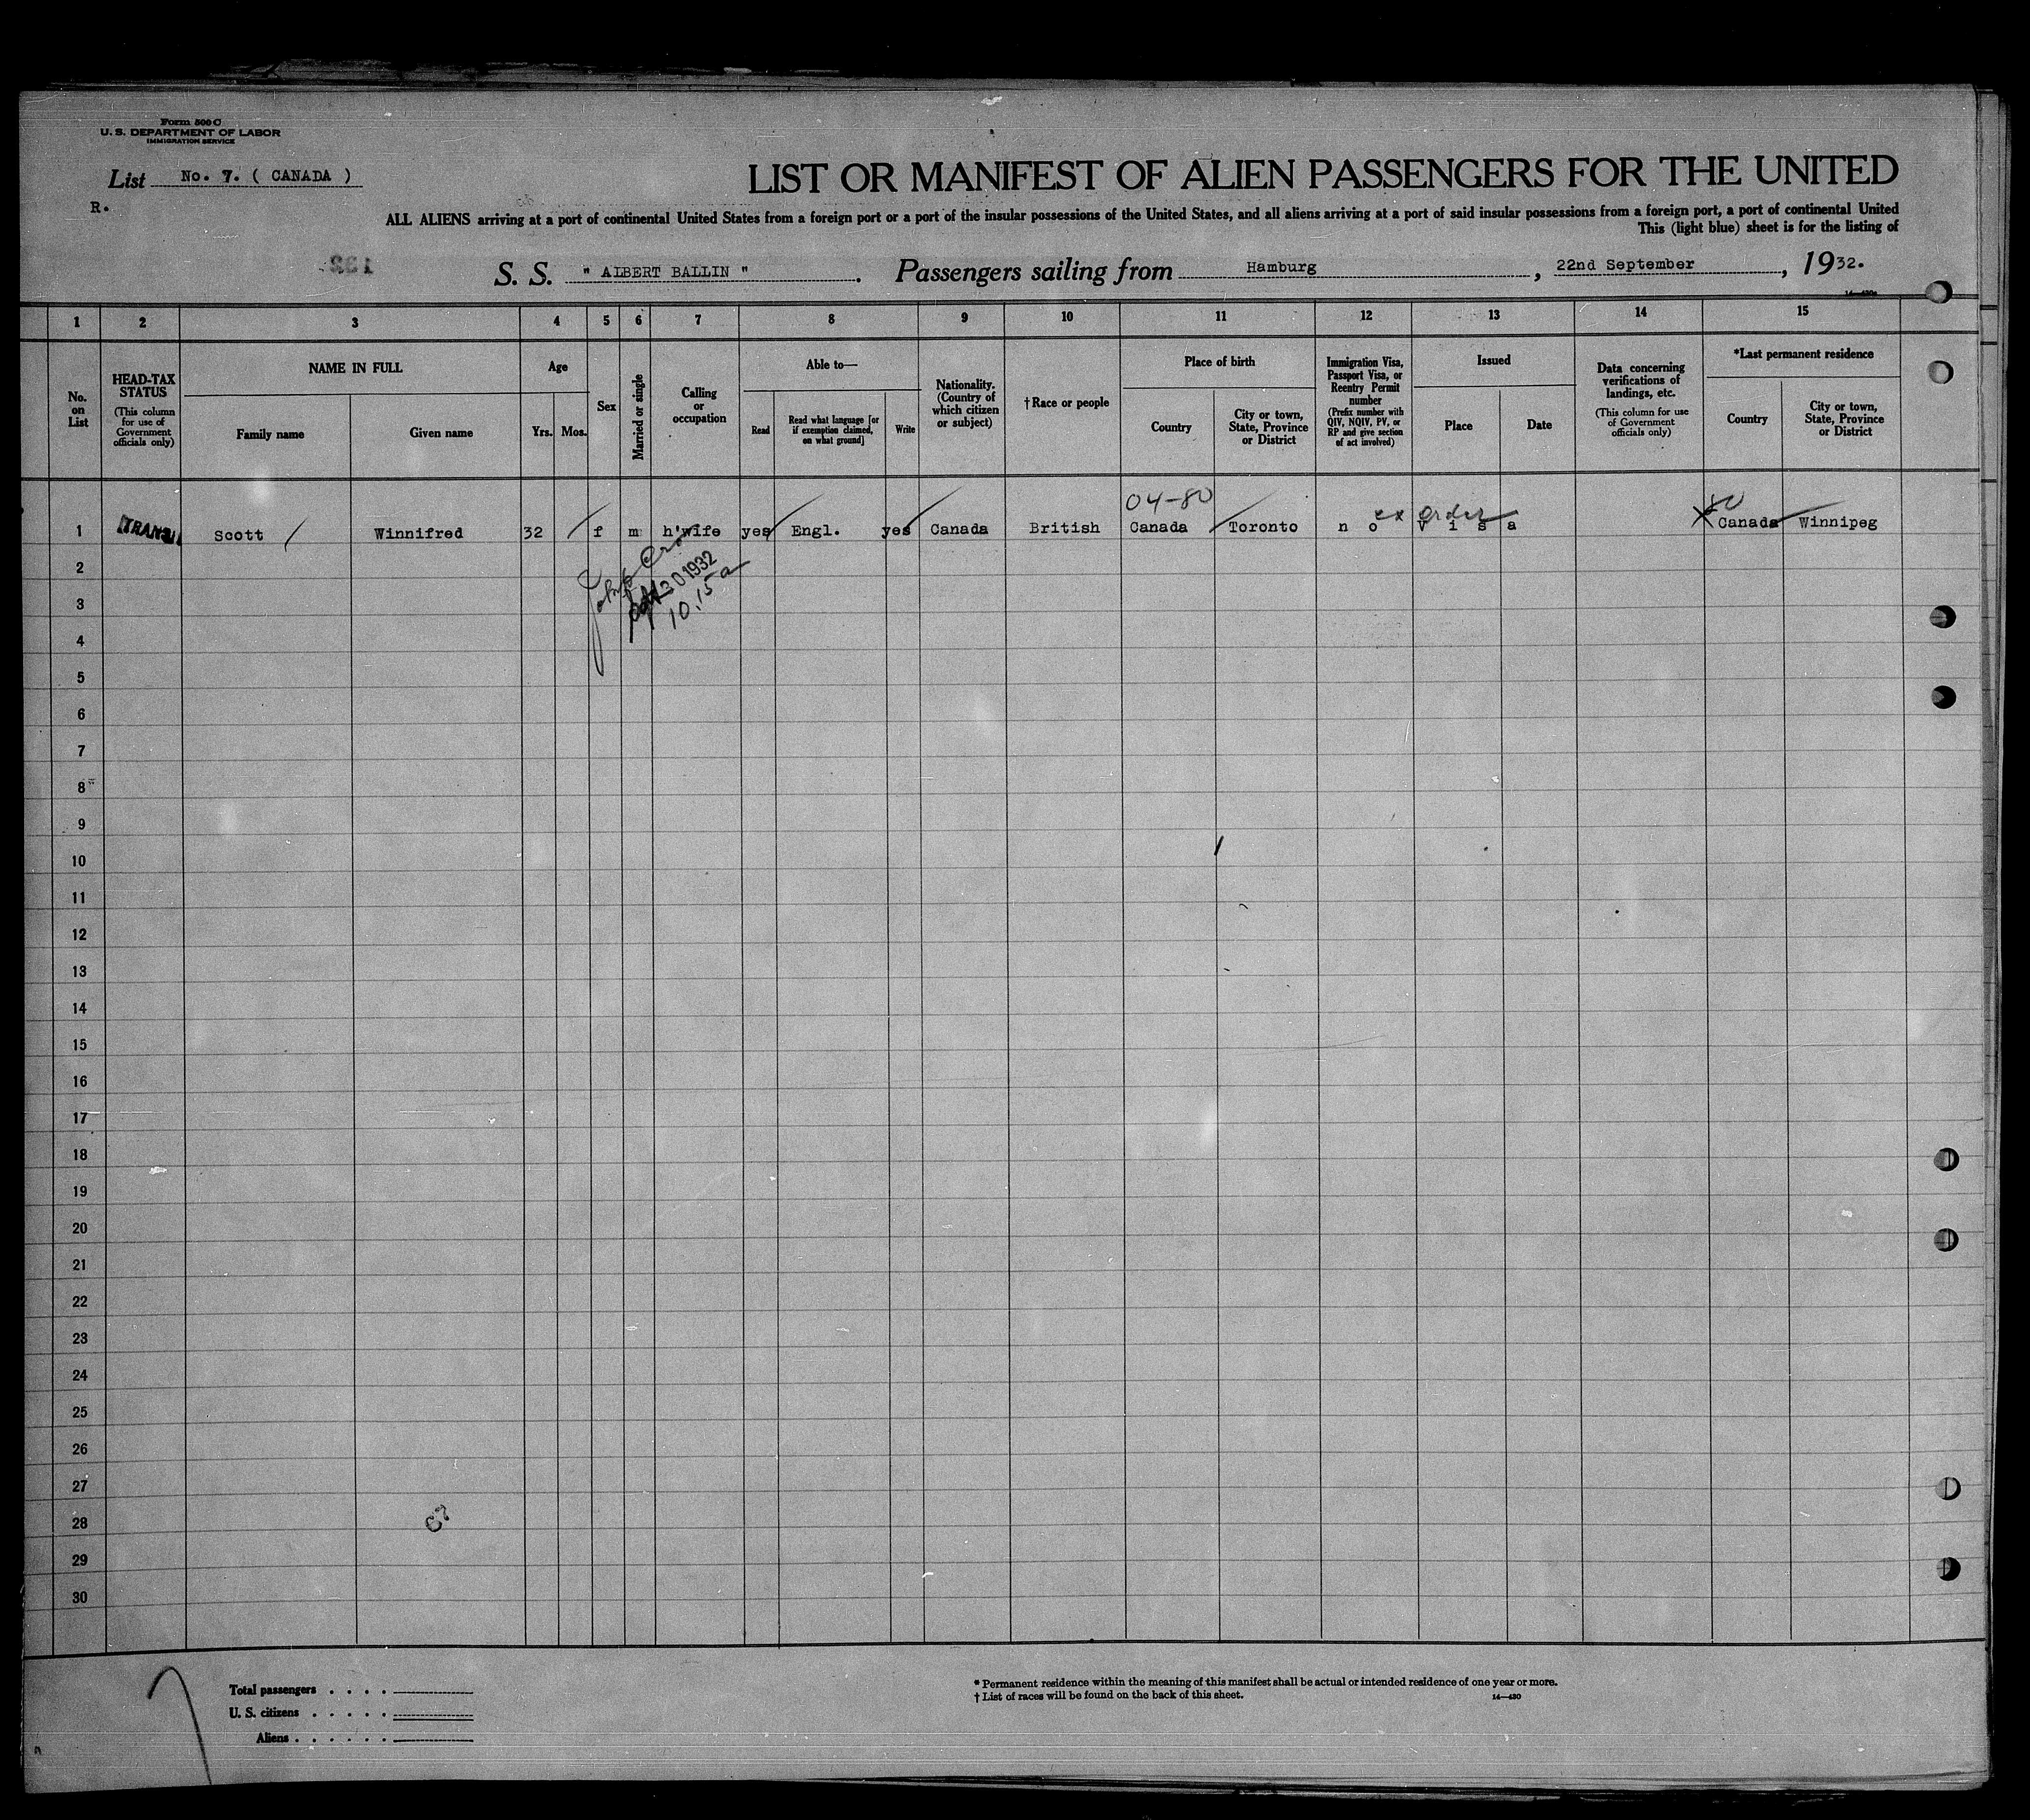 Form 500 C
U. S. DEPARTMENT OF LABOR
IMMIGRATION SERVICE
List No. 7. ( CANADA )
R.
LIST OR MANIFEST OF ALIEN PASSENGERS FOR THE UNITED
ALL ALIENS arriving at a port of continental United States from a foreign port or a port of the insular possessions of the United States, and all aliens arriving at a port of said insular possessions from a foreign port, a port of continental United
This (light blue) sheet is for the listing of
S. S. " ALBERT BALLIN ". Passengers sailing from Hamburg, 22nd September, 1932.
1 2 3 4 5 6 7 8 9 10 11 12 13 14 15
No. on List
HEAD-TAX STATUS
(This column for use of Government officials only)
NAME IN FULL
Family name
Given name
Age
Yrs. Mos.
Sex
Married or single
Calling or occupation
Able to—
Read
Read what language [or if exemption claimed, on what ground]
Write
Nationality. (Country of which citizen or subject)
†Race or people
Place of birth
Country
City or town, State, Province or District
Immigration Visa, Passport Visa, or Reentry Permit number
(Prefix number with QIV, NQIV, PV, or RP and give section of act involved)
Issued
Place
Date
Data concerning verifications of landings, etc.
(This column for use of Government officials only)
*Last permanent residence
Country
City or town, State, Province or District
04-80 ex order 80
1 TRANSI Scott Winnifred 32 f m h'wife yes Engl. yes Canada British Canada Toronto no visa Canada Winnipeg
30 1932
10.15 a
2
3
4
5
6
7
8
9
10
11
12
13
14
15
16
17
18
19
20
21
22
23
24
25
26
27
28
29
30
Total passengers . . . .
U. S. citizens . . . . .
Aliens . . . . . .
* Permanent residence within the meaning of this manifest shall be actual or intended residence of one year or more.
† List of races will be found on the back of this sheet.
14—430